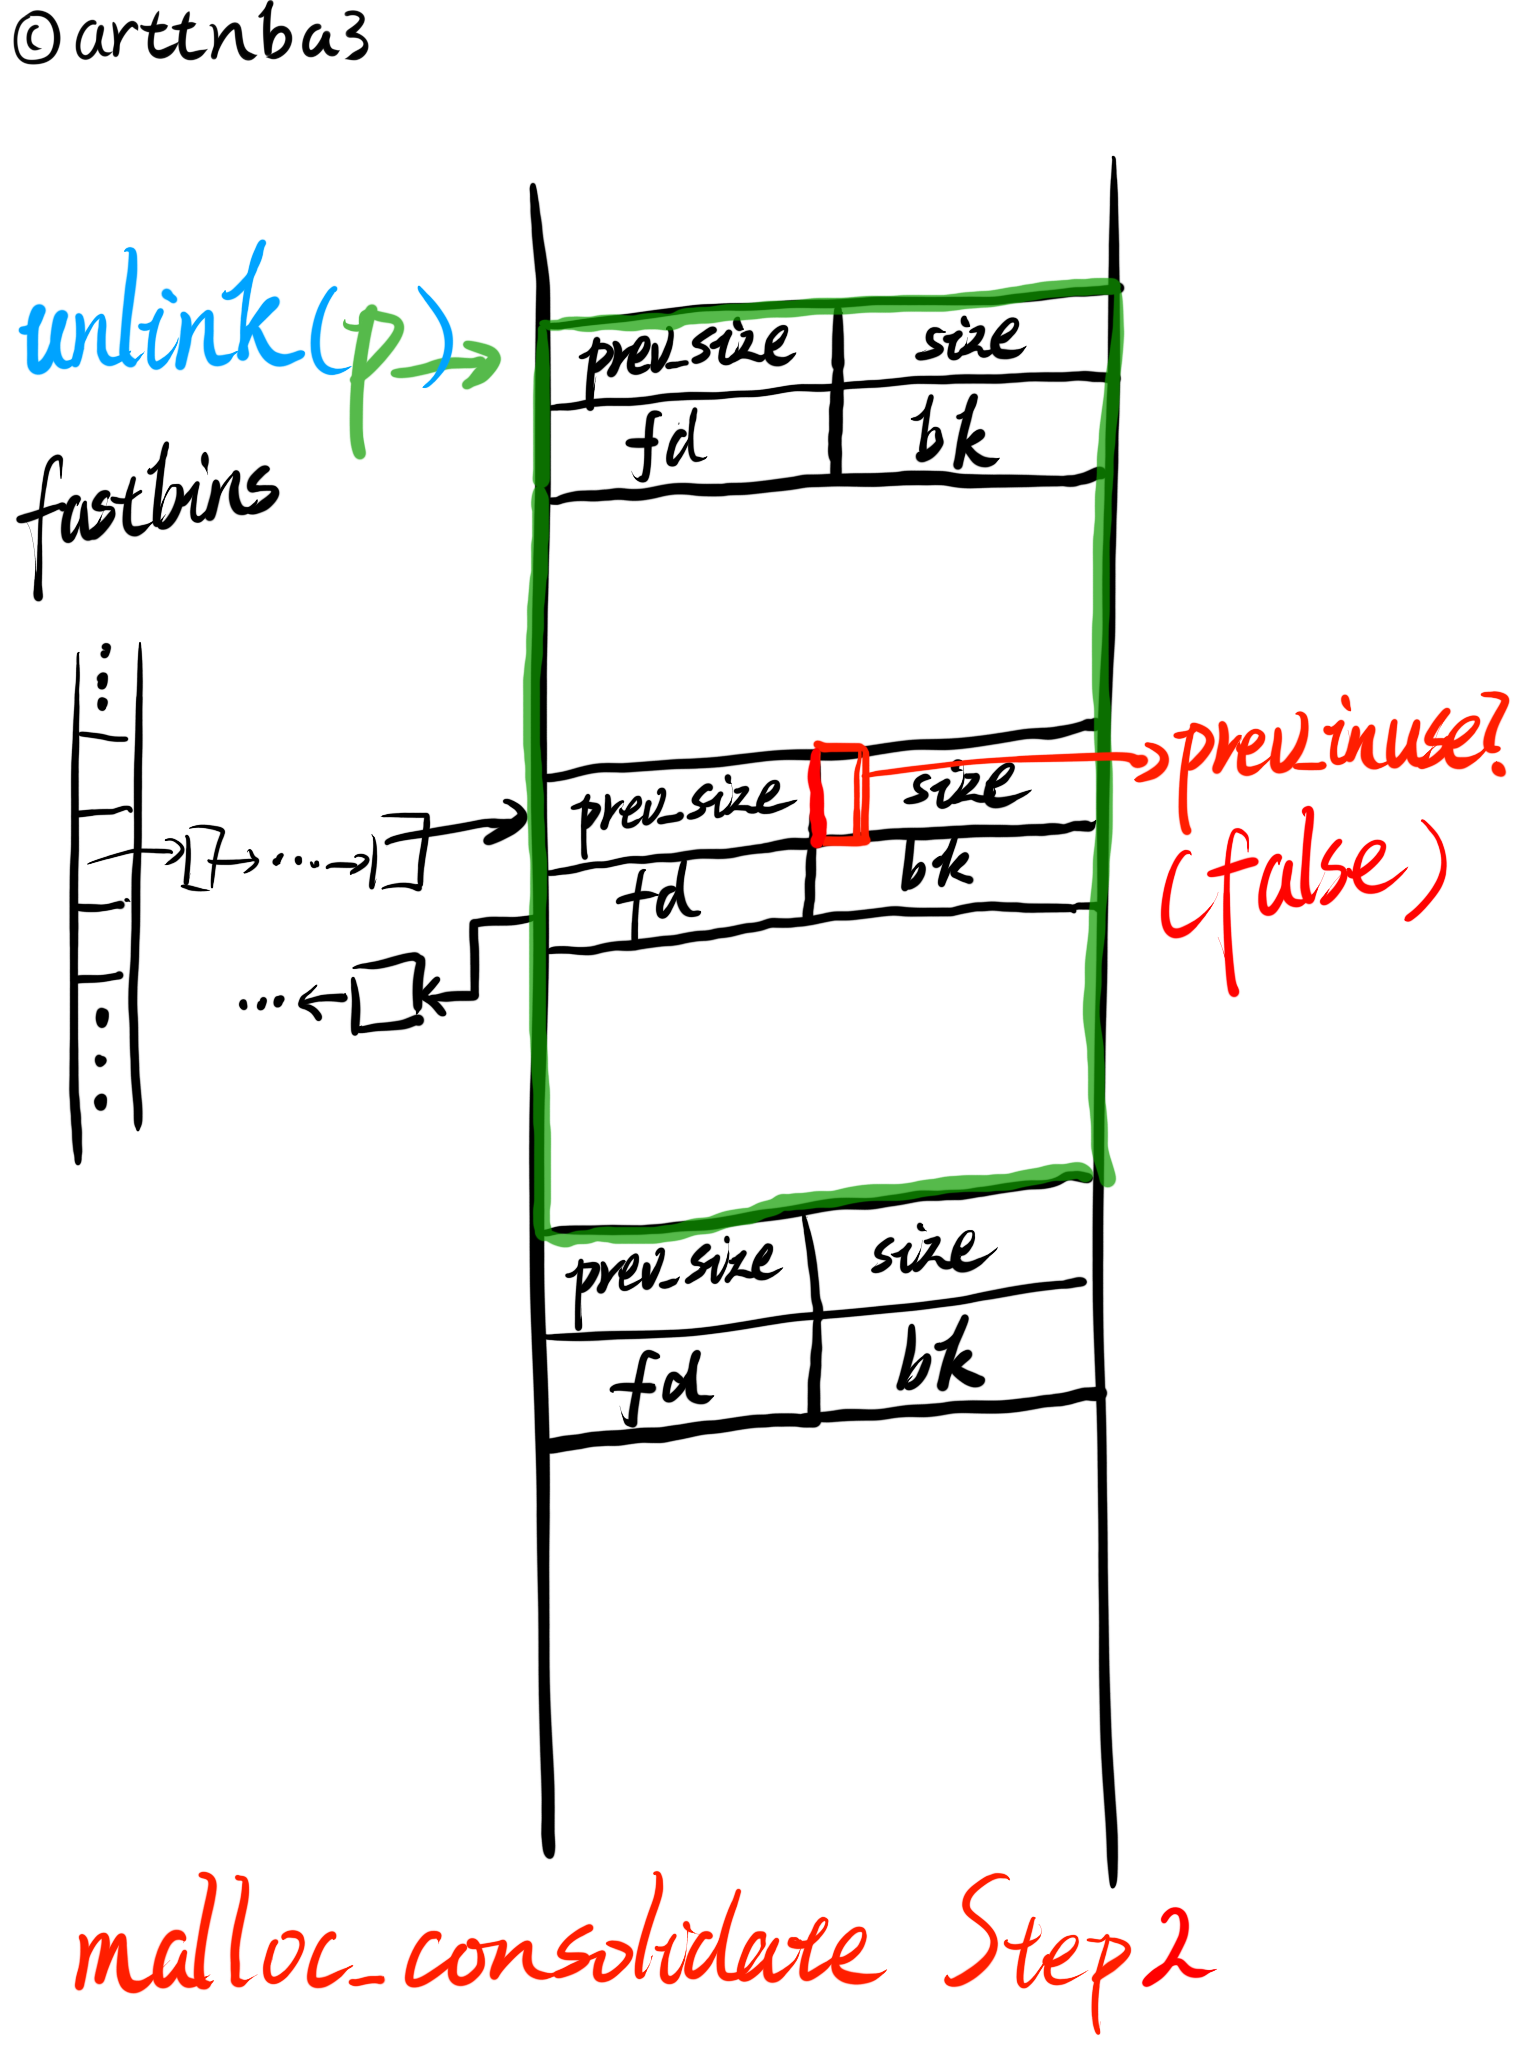 ©arttnba3
unlink(p)→
fastbins
prev_size size
fd bk
prev_size size
fd bk
prev_inuse?
(false)
prev_size size
fd bk
malloc_consolidate Step2